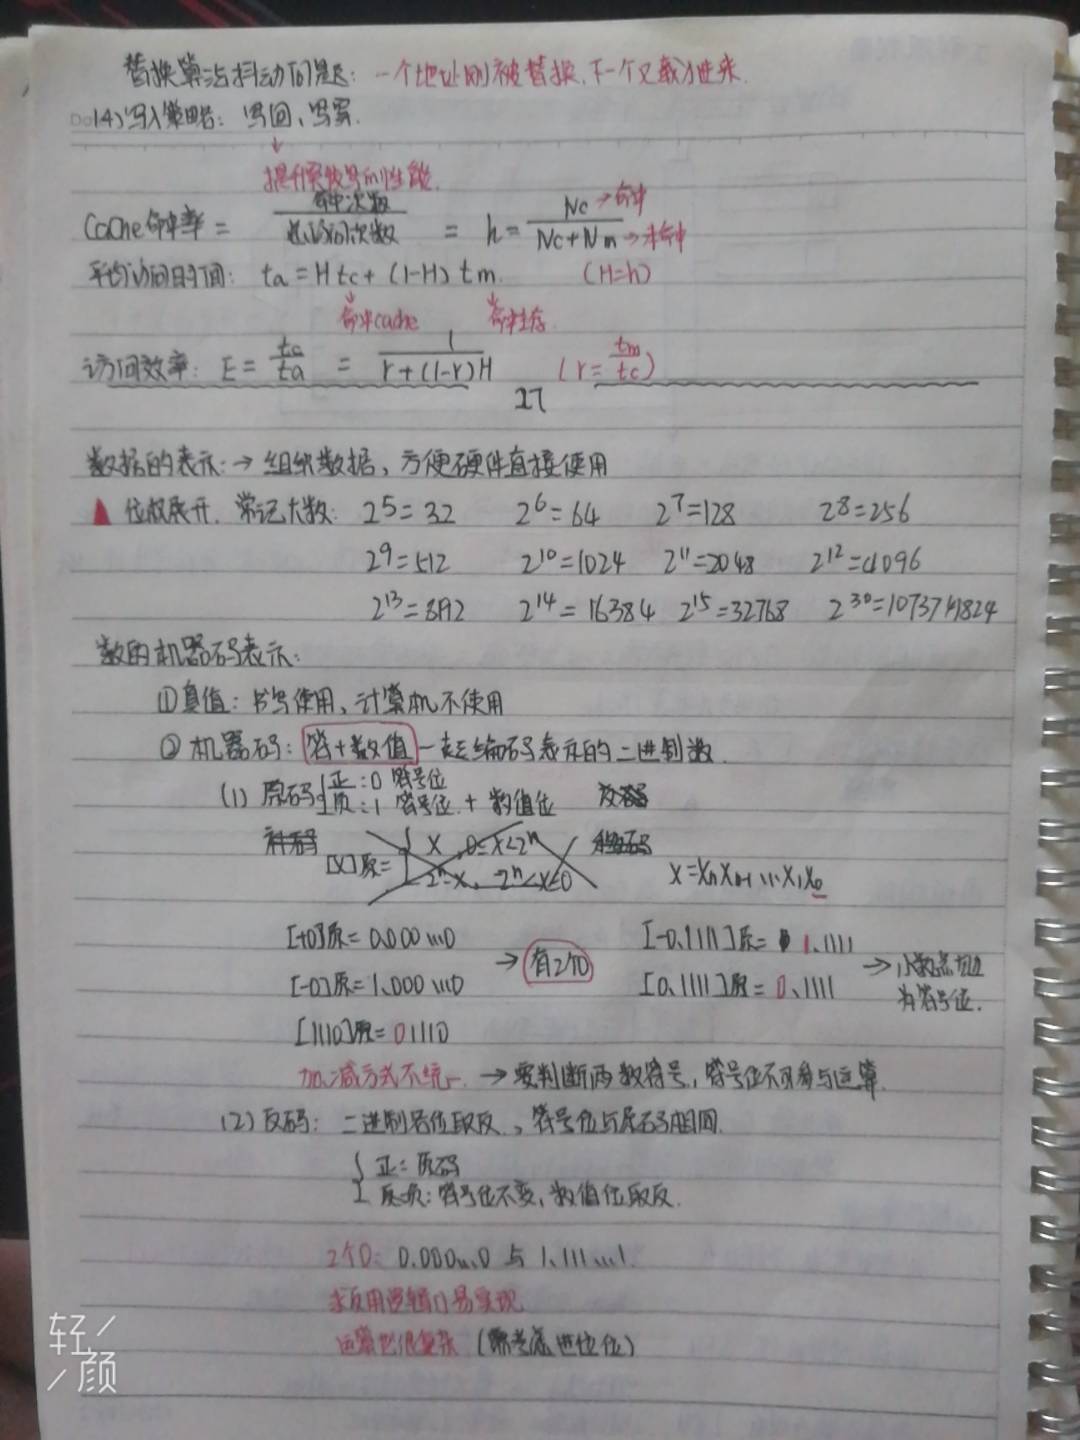 替换算法抖动问题：一个地址刚被替换、下一个又载入进来.
(4)写入策略：写回、写穿.
提升突发写的性能.
Cache命中率 = 命中次数/总访问次数 = h = Nc/(Nc+Nm) →命中 →未命中
平均访问时间：ta = Htc + (1-H) tm. (H=h)
命中cache 命中主存
访问效率：E = tc/ta = 1/(r+(1-r)H) (r = tm/tc)
27
数据的表示：→ 组织数据，方便硬件直接使用
位权展开. 常记大数：2^5=32 2^6=64 2^7=128 2^8=256
2^9=512 2^10=1024 2^11=2048 2^12=4096
2^13=8192 2^14=16384 2^15=32768 2^30=1073741824
数的机器码表示：
①真值：书写使用、计算机不使用
②机器码：符+数值一起编码表示的二进制数.
(1) 原码{正：0 符号位
负：1 符号位 + 数值位
[X]原= { X, 0≤X<2^n
2^n-X, -2^n<X≤0 X=XnXn-1...X1X0
[+0]原=0.000...0 → 有2个0 [-0.1111]原= 1.1111
[-0]原=1.000...0 [0.1111]原=0.1111 → 小数点边
有符号位.
[1110]原=01110
加、减方式不统一. → 要判断两数符号，符号位不可参与运算.
(2) 反码：二进制各位取反、符号位与原码相同.
{ 正：原码
负：符号位不变，数值位取反.
2个0：0.000...0 与 1.111...1
求反用逻辑门易实现
运算也很复杂 (需考虑进位位)
轻/
/颜